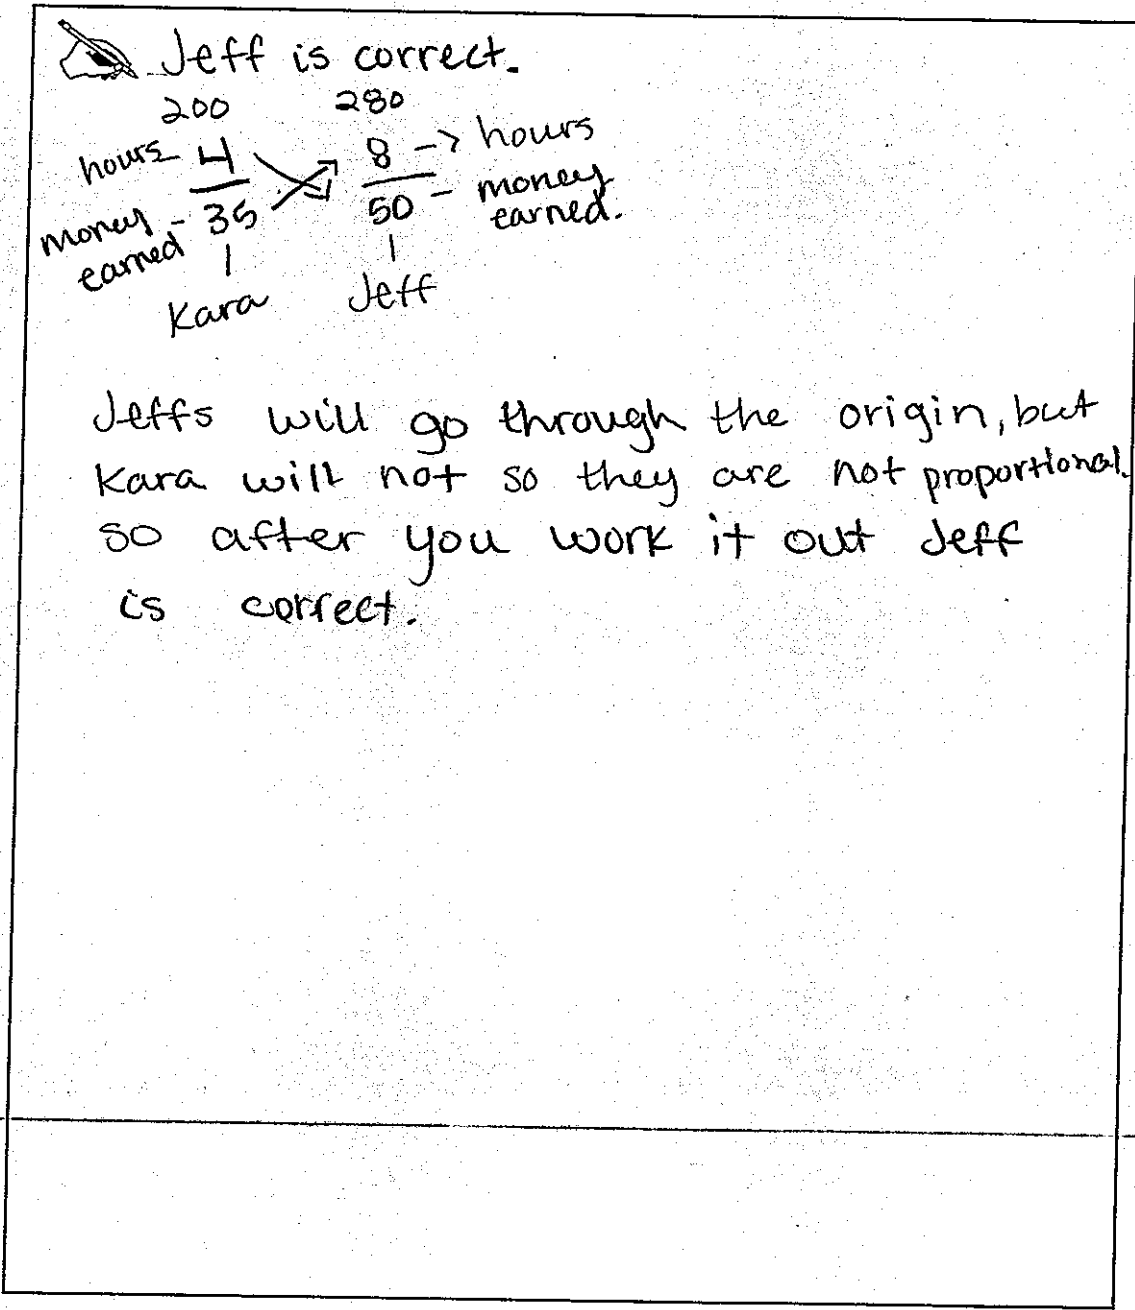 Jeff is correct.
200 280
hours - 4 8 -> hours
money earned - 35 50 - money earned.
Kara Jeff
Jeffs will go through the origin, but
Kara will not so they are not proportional.
so after you work it out Jeff
is correct.